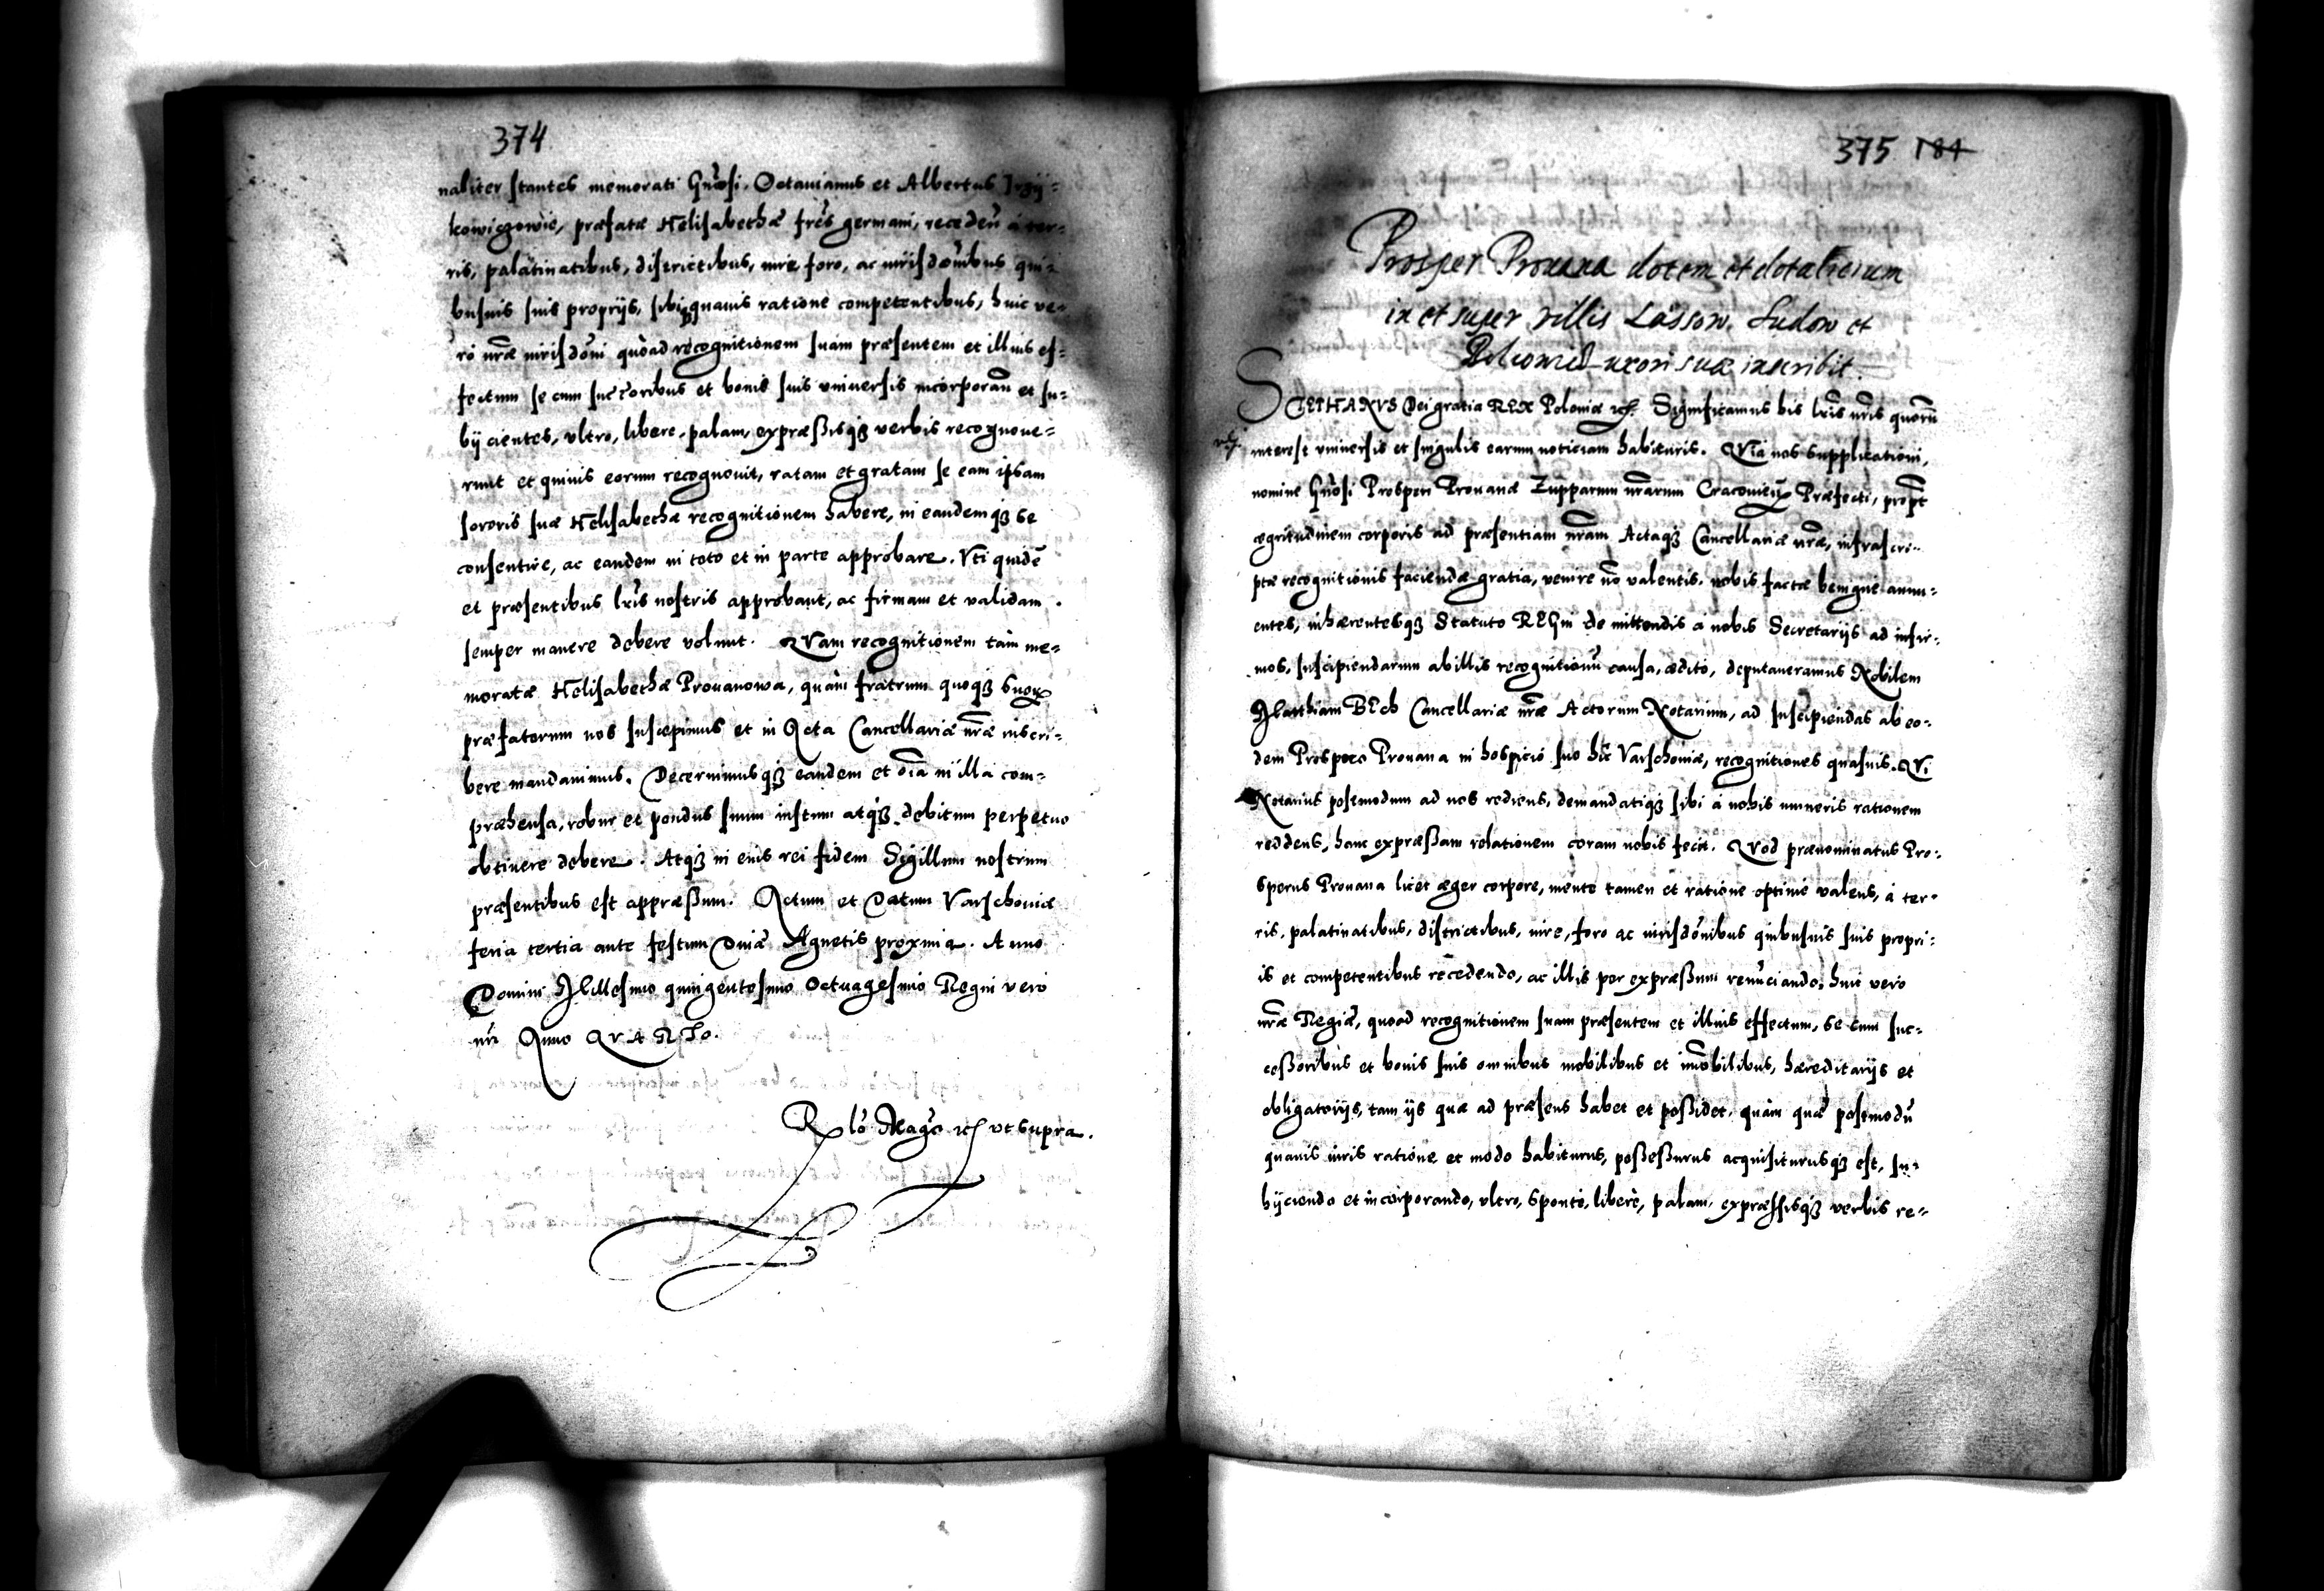 374
naliter stantes memorati Gñosi, Octavianus et Albertus
kowiczowie, præfatæ Helisabethæ frẽs germani, recedeñ a ter-
ris, palatinatibus, districtibus, iure, foro, ac iurisdõnibus qui-
busuis suis proprijs, sibiq quauis ratione competentibus, huic ve-
ro nr̃æ iurisdõni quoad recognitionem suam præsentem et illius ef-
fectum se cum succ̃oribus et bonis suis vniuersis incorporañ et su-
bijcientes, vltro, libere, palam, expræßisq3 verbis recognoue-
runt et quiuis eorum recognouit, ratam et gratam se eam ipsam
sororis suæ Helisabethæ recognitionem habere, in eandemq3 se
consentire, ac eandem in toto et in parte approbare. Vti quidẽ
et præsentibus lr̃is nostris approbant, ac firmam et validam
semper manere debere volunt. QVam recognitionem tàm me-
moratæ Helisabethæ Prouanowa, quàm fratrum quoq3 suoꝝ
præfatorum nos suscepimus et in Acta Cancellariæ nr̃æ inscri-
bere mandauimus. Decernimusq3 eandem et oĩa in illa com-
præhensa, robur et pondus suum iustum atq3 debitum perpetuo
obtinere debere. Atq3 in eius rei fidem Sigillum nostrum
præsentibus est appræßum. Actum et Datum Varschouiæ
feria tertia ante festum Diuæ Agnetis proxima. Anno
Domini Millesimo quingentesimo Octuagesimo Regni vero
nr̃i Anno QVARTo.
Rlõ Magci etc vt supra.
375 184
Prosper Prouana dotem et dotalicium
in et super villis Lassow, Ludow et
uxori suæ inscribit.
STEPHANVS Dei gratia REX Poloniæ etc. Significamus his lr̃is nr̃is quorũ
interest vniuersis et singulis earum noticiam habituris. QVia nos supplicationi,
nomine Gñosi Prosperi Prouanæ Zupparum nr̃arum Cracouieñ Præfecti, propt̃
ægritudinem corporis ad præsentiam nr̃am Actaq3 Cancellariæ nr̃æ, infrascri-
ptæ recognitionis faciendæ gratia, venire nõ valentis, nobis factæ benigne annu-
entes, inhærentesq3 Statuto REGni de mittendis à nobis Secretarijs ad infir-
mos, suscipiendarum ab illis recognitionũ causa, ædito, deputaueramus Nobilem
Mathiam BECh Cancellariæ nr̃æ Actorum Notarium, ad suscipiendas ab eo-
dem Prospero Prouana in hospicio suo hîc Varschouiæ, recognitiones quasuis. QVi
Notarius postmodum ad nos rediens, demandatiq3 sibi à nobis muneris rationem
reddens, hanc expræßam relationem coram nobis fecit. QVod prænominatus Pro-
sperus Prouana licet æger corpore, mente tamen et ratione optime valens, à ter-
ris, palatinatibus, districtibus, iure, foro ac iurisdõnibus quibusuis suis propri-
is et competentibus recedendo, ac illis per expræßum renũciando, huic vero
nr̃æ Regiæ, quoad recognitionem suam præsentem et illius effectum, se cum suc-
ceßoribus et bonis suis omnibus mobilibus et im̃obilibus, hæreditarijs et
obligatorijs, tam ijs quæ ad præsens habet et poßidet, quàm quæ postmodũ
quauis iuris ratione et modo habiturus, poßeßurus acquisiturusq3 est, su-
bijciendo et incorporando, vltro, sponte, libere, palam, expræssisq3 verbis re-